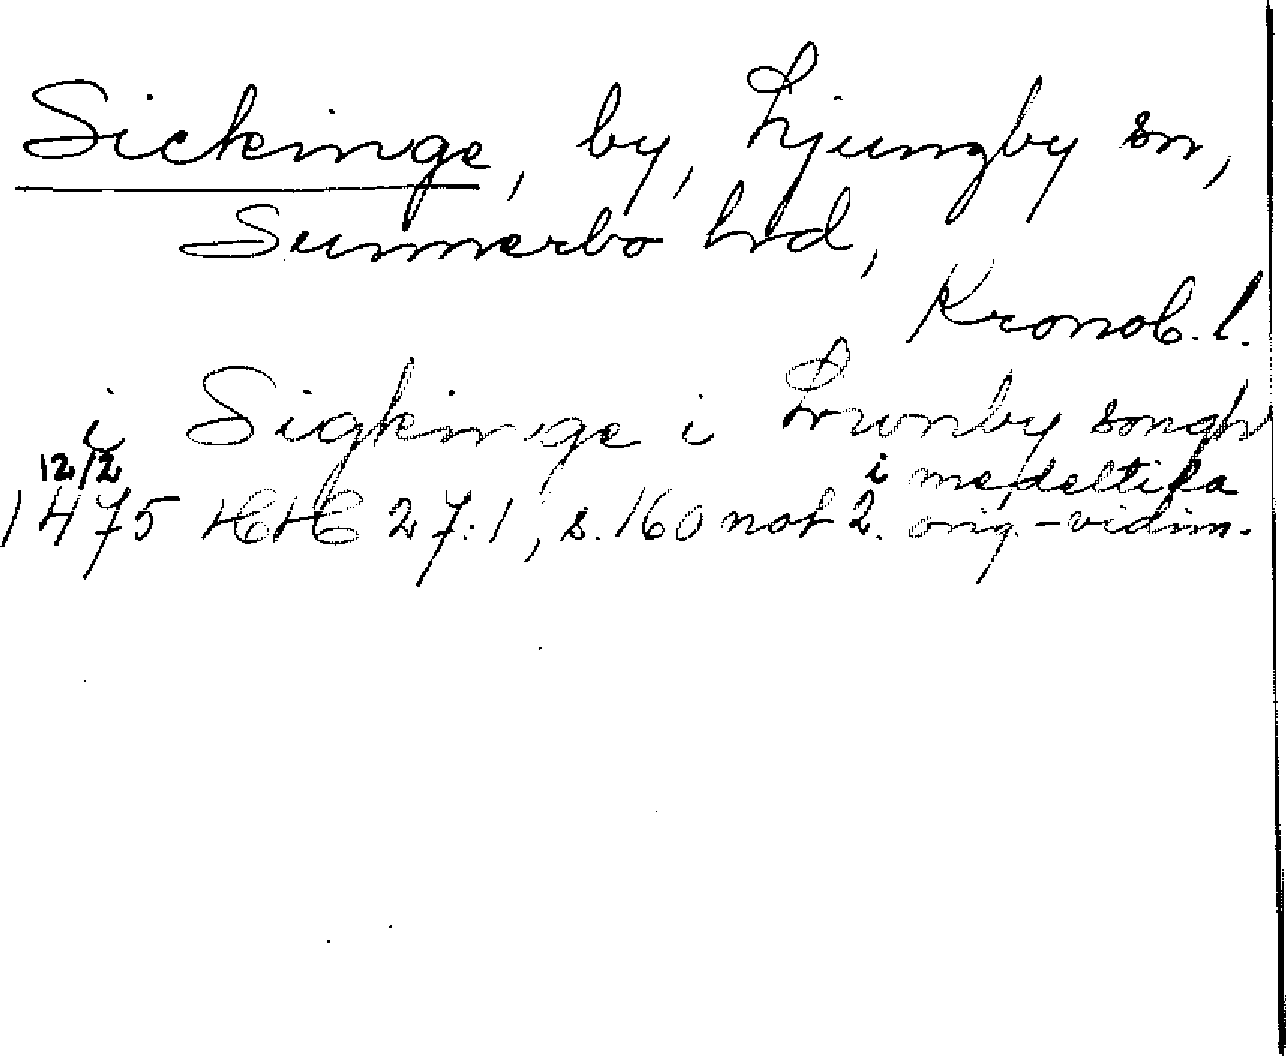 Sickinge, by, Ljungby sn,
Sunnerbo hrd,
Kronob. l.
i Sigkinge i Liwnby songh
12/2 i medeltida
1475 HH 27:1, s. 160 not 2. orig.-vidim.